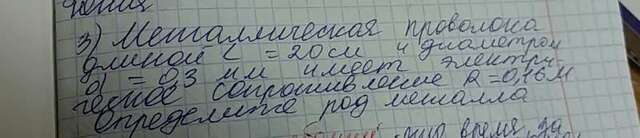 3) Металлическая проволока
длиной L = 20 см и диаметром
d = 0,3 мм имеет электри-
ческое сопротивление R = 0,16 Ом
Определите род металла
время, за